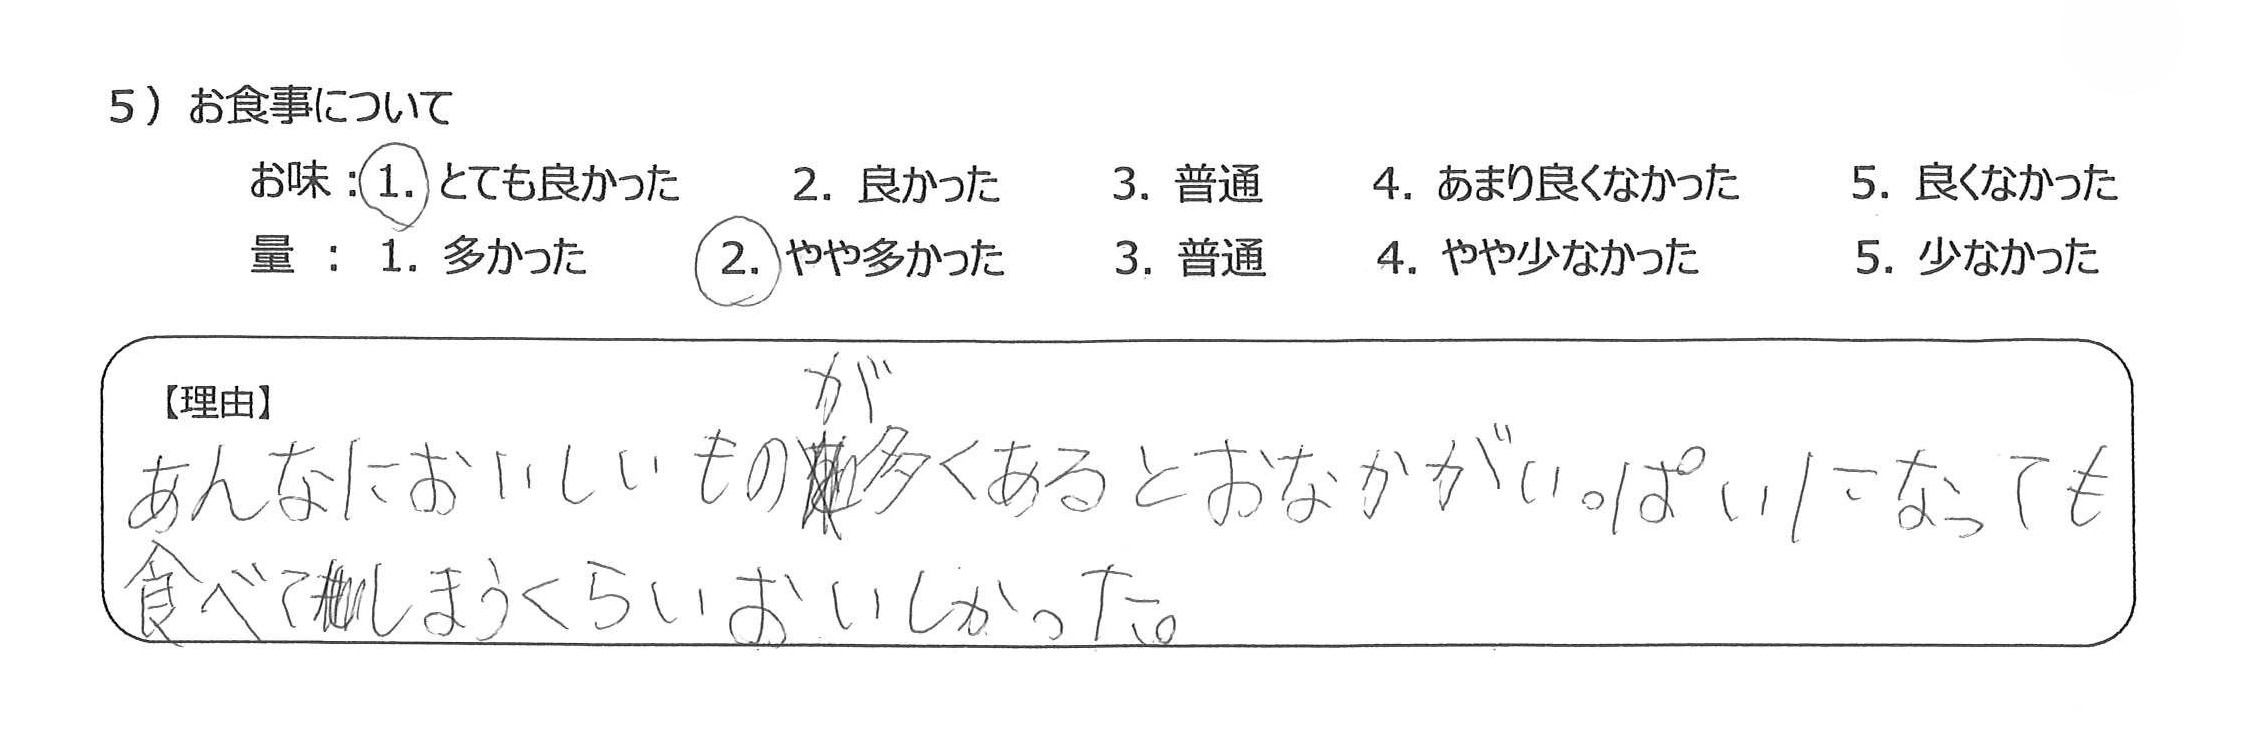 5）お食事について
お味：1. とても良かった 2. 良かった 3. 普通 4. あまり良くなかった 5. 良くなかった
量 ： 1. 多かった 2. やや多かった 3. 普通 4. やや少なかった 5. 少なかった
【理由】
あんなにおいしいものが多くあるとおなかがいっぱいになっても
食べてしまうくらいおいしかった。